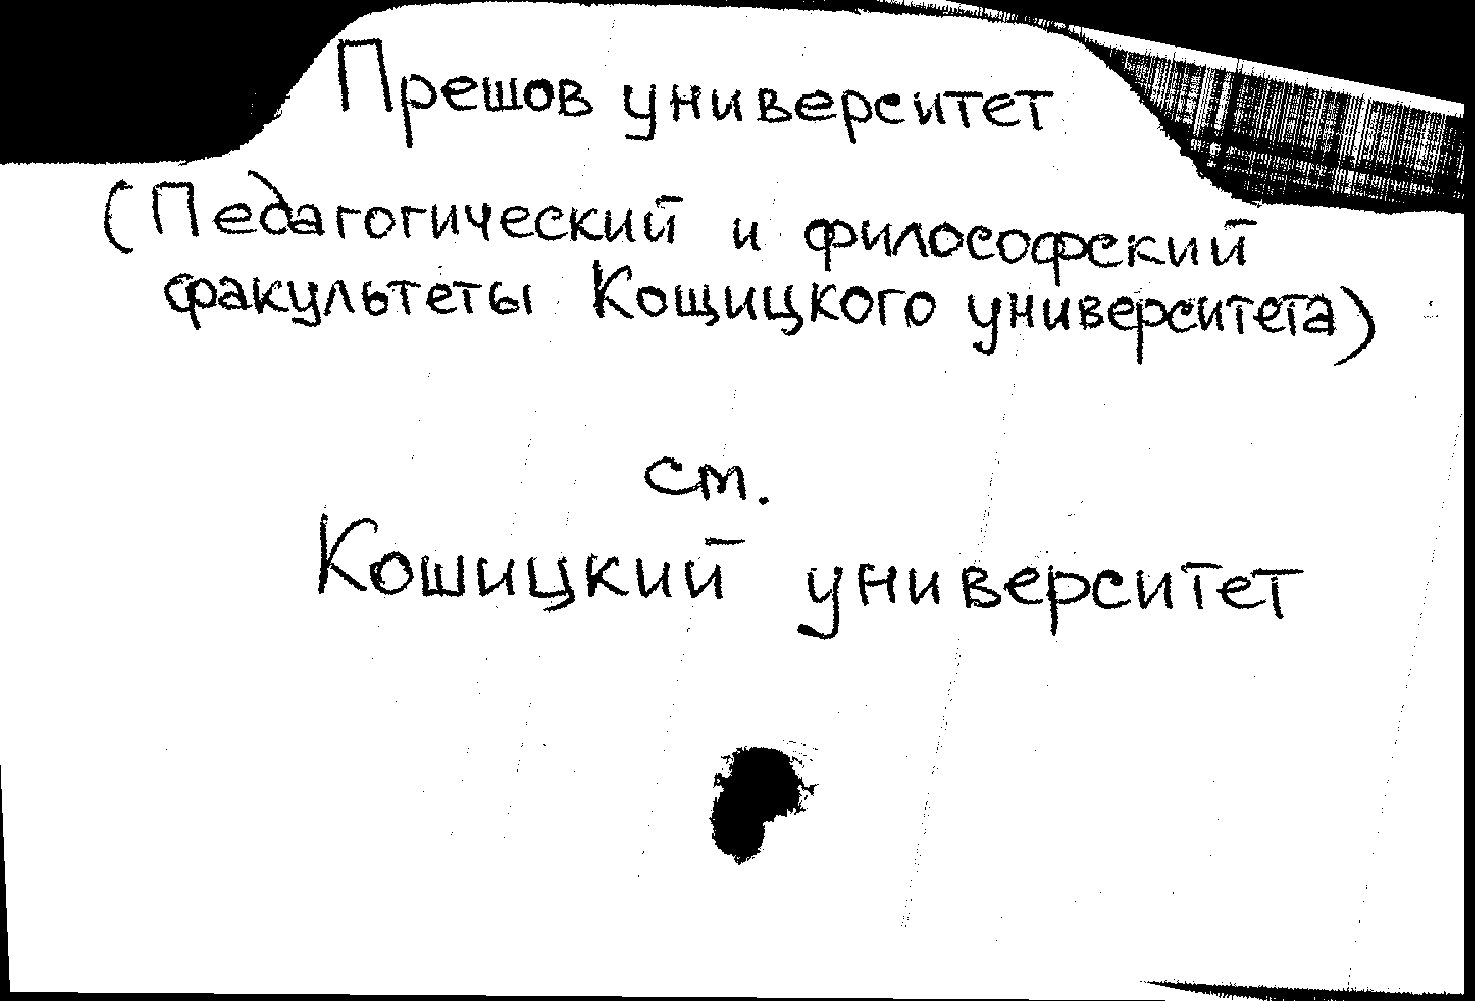 Прешов университет
(Педагогический и философский
факультеты Кощицкого университета)
см.
Кошицкий университет